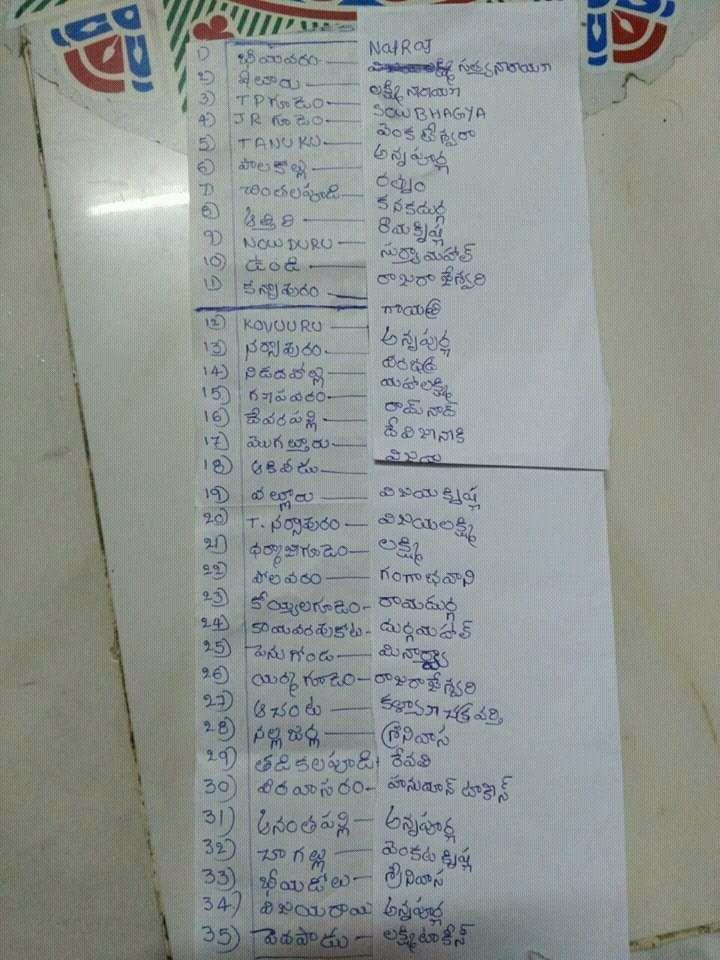 1) భీమవరం - NatRaJ
2) ఏలూరు - సత్యనారాయణ
3) T P గూడెం - లక్ష్మీ నారాయణ
4) J R గూడెం - SOWBHAGYA
5) TANUKU - వెంకటేశ్వరా
6) పాలకొల్లు - అన్నపూర్ణ
7) చింతలపూడి - రత్నం
8) అత్తిలి - కనకదుర్గ
9) NOWDURU - రామకృష్ణ
10) ఉండి - సుర్యామహల్
11) కన్నాపురం - రాజరాజేశ్వరి
12) KOVUURU - గాయత్రి
13) నర్సాపురం - అన్నపుర్ణ
14) నిడదవోల్లు - వీరభద్ర
15) గణపవరం - మహాలక్ష్మి
16) దేవరపల్లి - రామ్ నాద్
17) మొగల్తూరు - దేవిజానకి
18) ఆకివీడు - విజయ
19) వల్లూరు - విజయకృష్ణ
20) T. నర్సాపురం - విజయలక్ష్మి
21) ధర్మాజీగూడెం - లక్ష్మి
22) పోలవరం - గంగాభవాని
23) కొయ్యలగూడెం - రామదుర్గ
24) కామవరపుకోట - దుర్గమహల్
25) పెనుగొండ - మినార్వా
26) యర్నగూడెం - రాజరాజేశ్వరి
27) ఆచంట - కళావాణి చక్రవర్తి
28) నల్లజర్ల - శ్రీనివాస
29) తడికలపూడి - రేవతి
30) వీరవాసరం - హనుమాన్ టాకీస్
31) అనంతపల్లి - అన్నపూర్ణ
32) చాగల్లు - వెంకటకృష్ణ
33) భీమడోలు - శ్రీనివాస
34) విజయరాయి అన్నపూర్ణ
35) పెదపాడు - లక్ష్మిటాకీస్